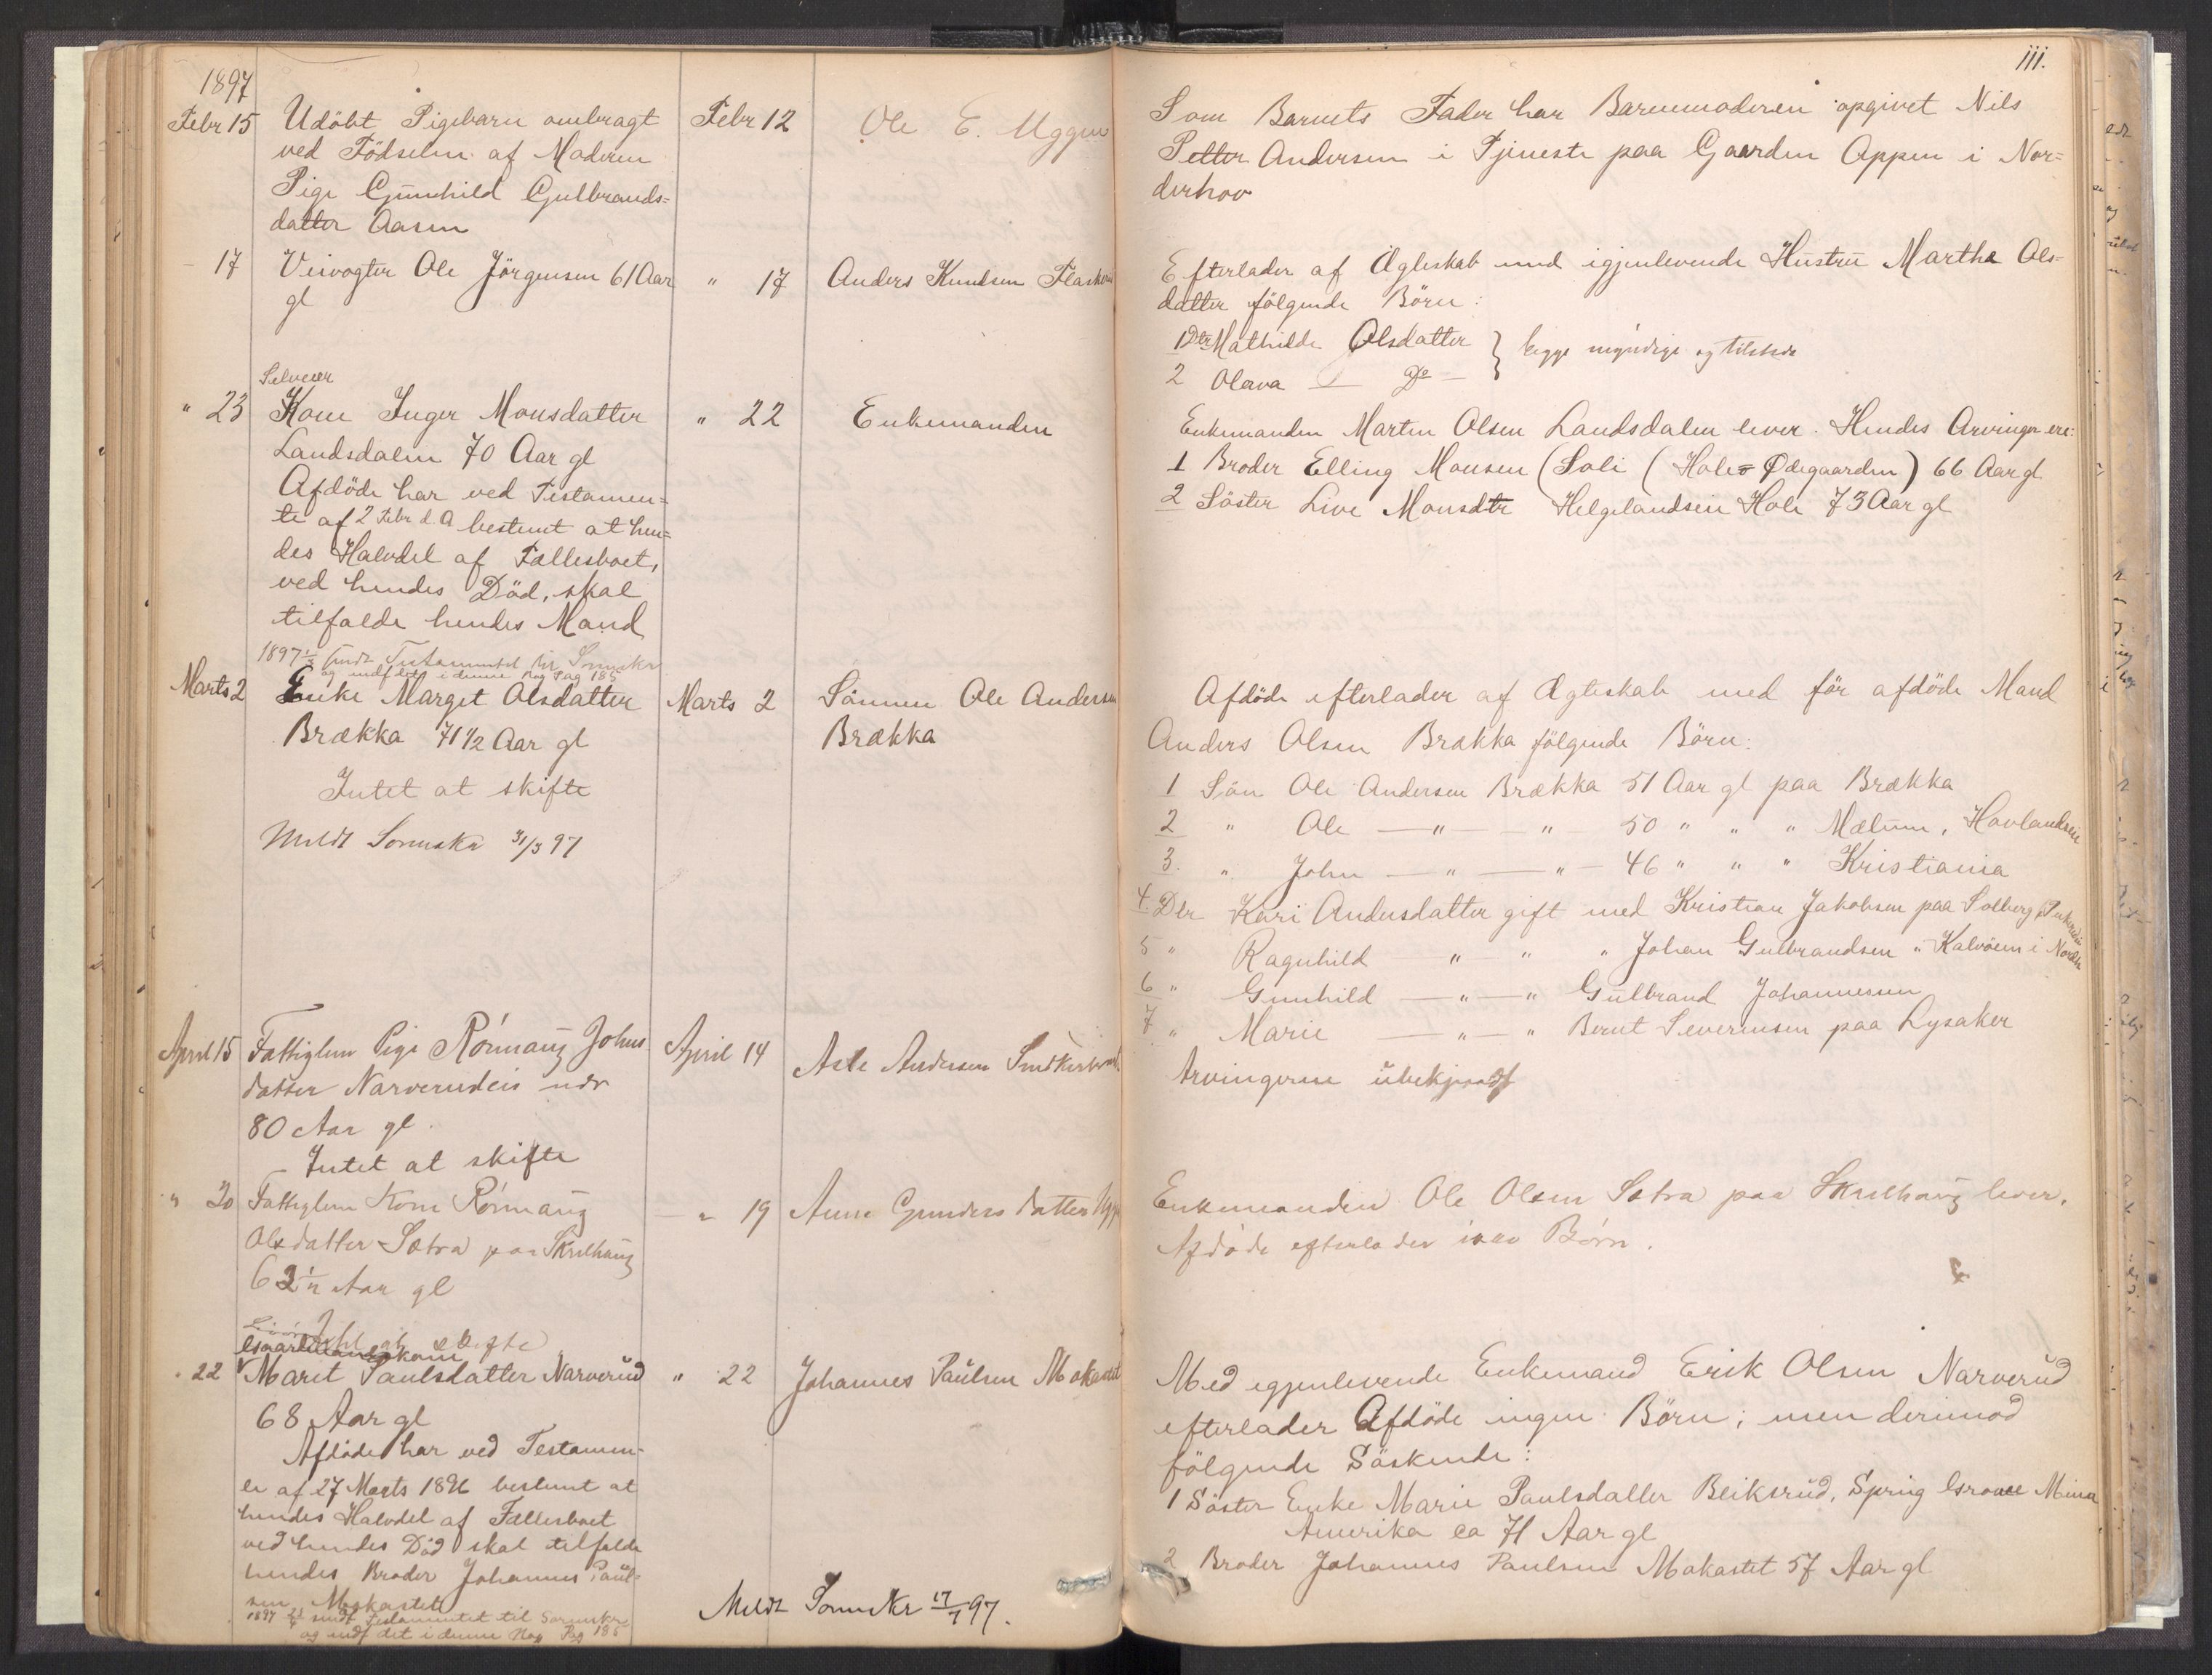 1897
Febr 15 Udöbt Pigebarn ombragt Febr 12 Ole E. Uggen
ved Födselen af Moderen
Pige Gunhild Gulbrands=
datter Aasen
- 17 Veivogter Ole Jörgensen 61 Aar " 17 Anders Knudsen
gl
Selveier
" 23 Kone Inger Monsdatter " 22 Enkemanden
Landsdalen 70 Aar gl
Afdöde har ved Testamen=
te af 2 Febr d. A bestemt at hen=
des Halvdel af Fællesboet,
ved hendes Död, skal
tilfalde hendes Mand
1897 Testamentet til Sornskr
og indf det i denne Prot Pag 185
Marts 2 Enke Marget Olsdatter Marts 2 Sönnen Ole Andersen
Brækka 71 1/2 Aar gl Brækka
Intet at skifte
Meldt Sornskr 31/3 97
April 15 Fattiglem Pige Rönnaug Johns April 14 Asle Andersen
datter Narverudeie
80 Aar gl.
Intet at skifte
" 20 Fattiglem Kone Rönnaug - " 19 Anne Gunders datter
Olsdatter Sætra paa Skulhaug
62 1/2 Aar gl
Intet at skifte
Gaardmandskone
" 22 Marit Paulsdatter Narverud " 22 Johannes Paulsen Mokastet
68 Aar gl
Afdöde har ved Testamen-
te af 27 Marts 1896 bestemt at
hendes Halvdel af Fællesboet
ved hendes Död skal tilfalde
hendes Broder Johannes Paul=
sen Mokastet
1897 sendt Testamentet til Sornskr
og indf det i denne Pag 185
Meldt Sornskr 17/7 97.
111.
Som Barnets Fader har Barnemoderen opgivet Nils
Petter Andersen i Tjeneste paa Gaarden Oppen i Nor=
derhov
Efterlader af Ægteskab med igjenlevende Hustru Martha Ols-
datter fölgende Börn:
1 Dtr Mathilde Olsdatter } begge myndige og tilstede
2 Olava — Do —
Enkemanden Martin Olsen Landsdalen lever. Hendes Arvinger ere:
1 Broder Elling Monsen (Soli (Hole= Ödegaarden) 66 Aar gl
2 Söster Live Monsdtr Helgelandseie Hole 73 Aar gl
Afdöde efterlader af Ægteskab med för afdöde Mand
Anders Olsen Brækka fölgende Börn:
1 Sön Ole Andersen Brækka 51 Aar gl paa Brækka
2 " Ole — " — " — 50 " " " Mælum, Hovlandseie
3. " John — " — " — 46 " " " Kristiania
4. Dtr Kari Andersdatter gift med Kristian Jakobsen paa Solberg
5 " Ragnhild — " — " " Johan Gulbrandsen " Kalvöen i
6 " Gunhild — " — " Gulbrand Johannesen
7 " Marie — " — " Bernt Severinsen paa Lysaker
Arvingerne ubekjendt
Enkemanden Ole Olsen Sætra paa Skulhaug lever.
Afdöde efterlader Börn.
Med igjenlevende Enkemand Erik Olsen Narverud
efterlader Afdöde ingen Börn; men derimod
fölgende Söskende:
1 Söster Enke Marie Paulsdatter Beiksrud, Spring Grove Minn
Amerika ca 71 Aar gl
2 Broder Johannes Paulsen Mokastet 57 Aar gl